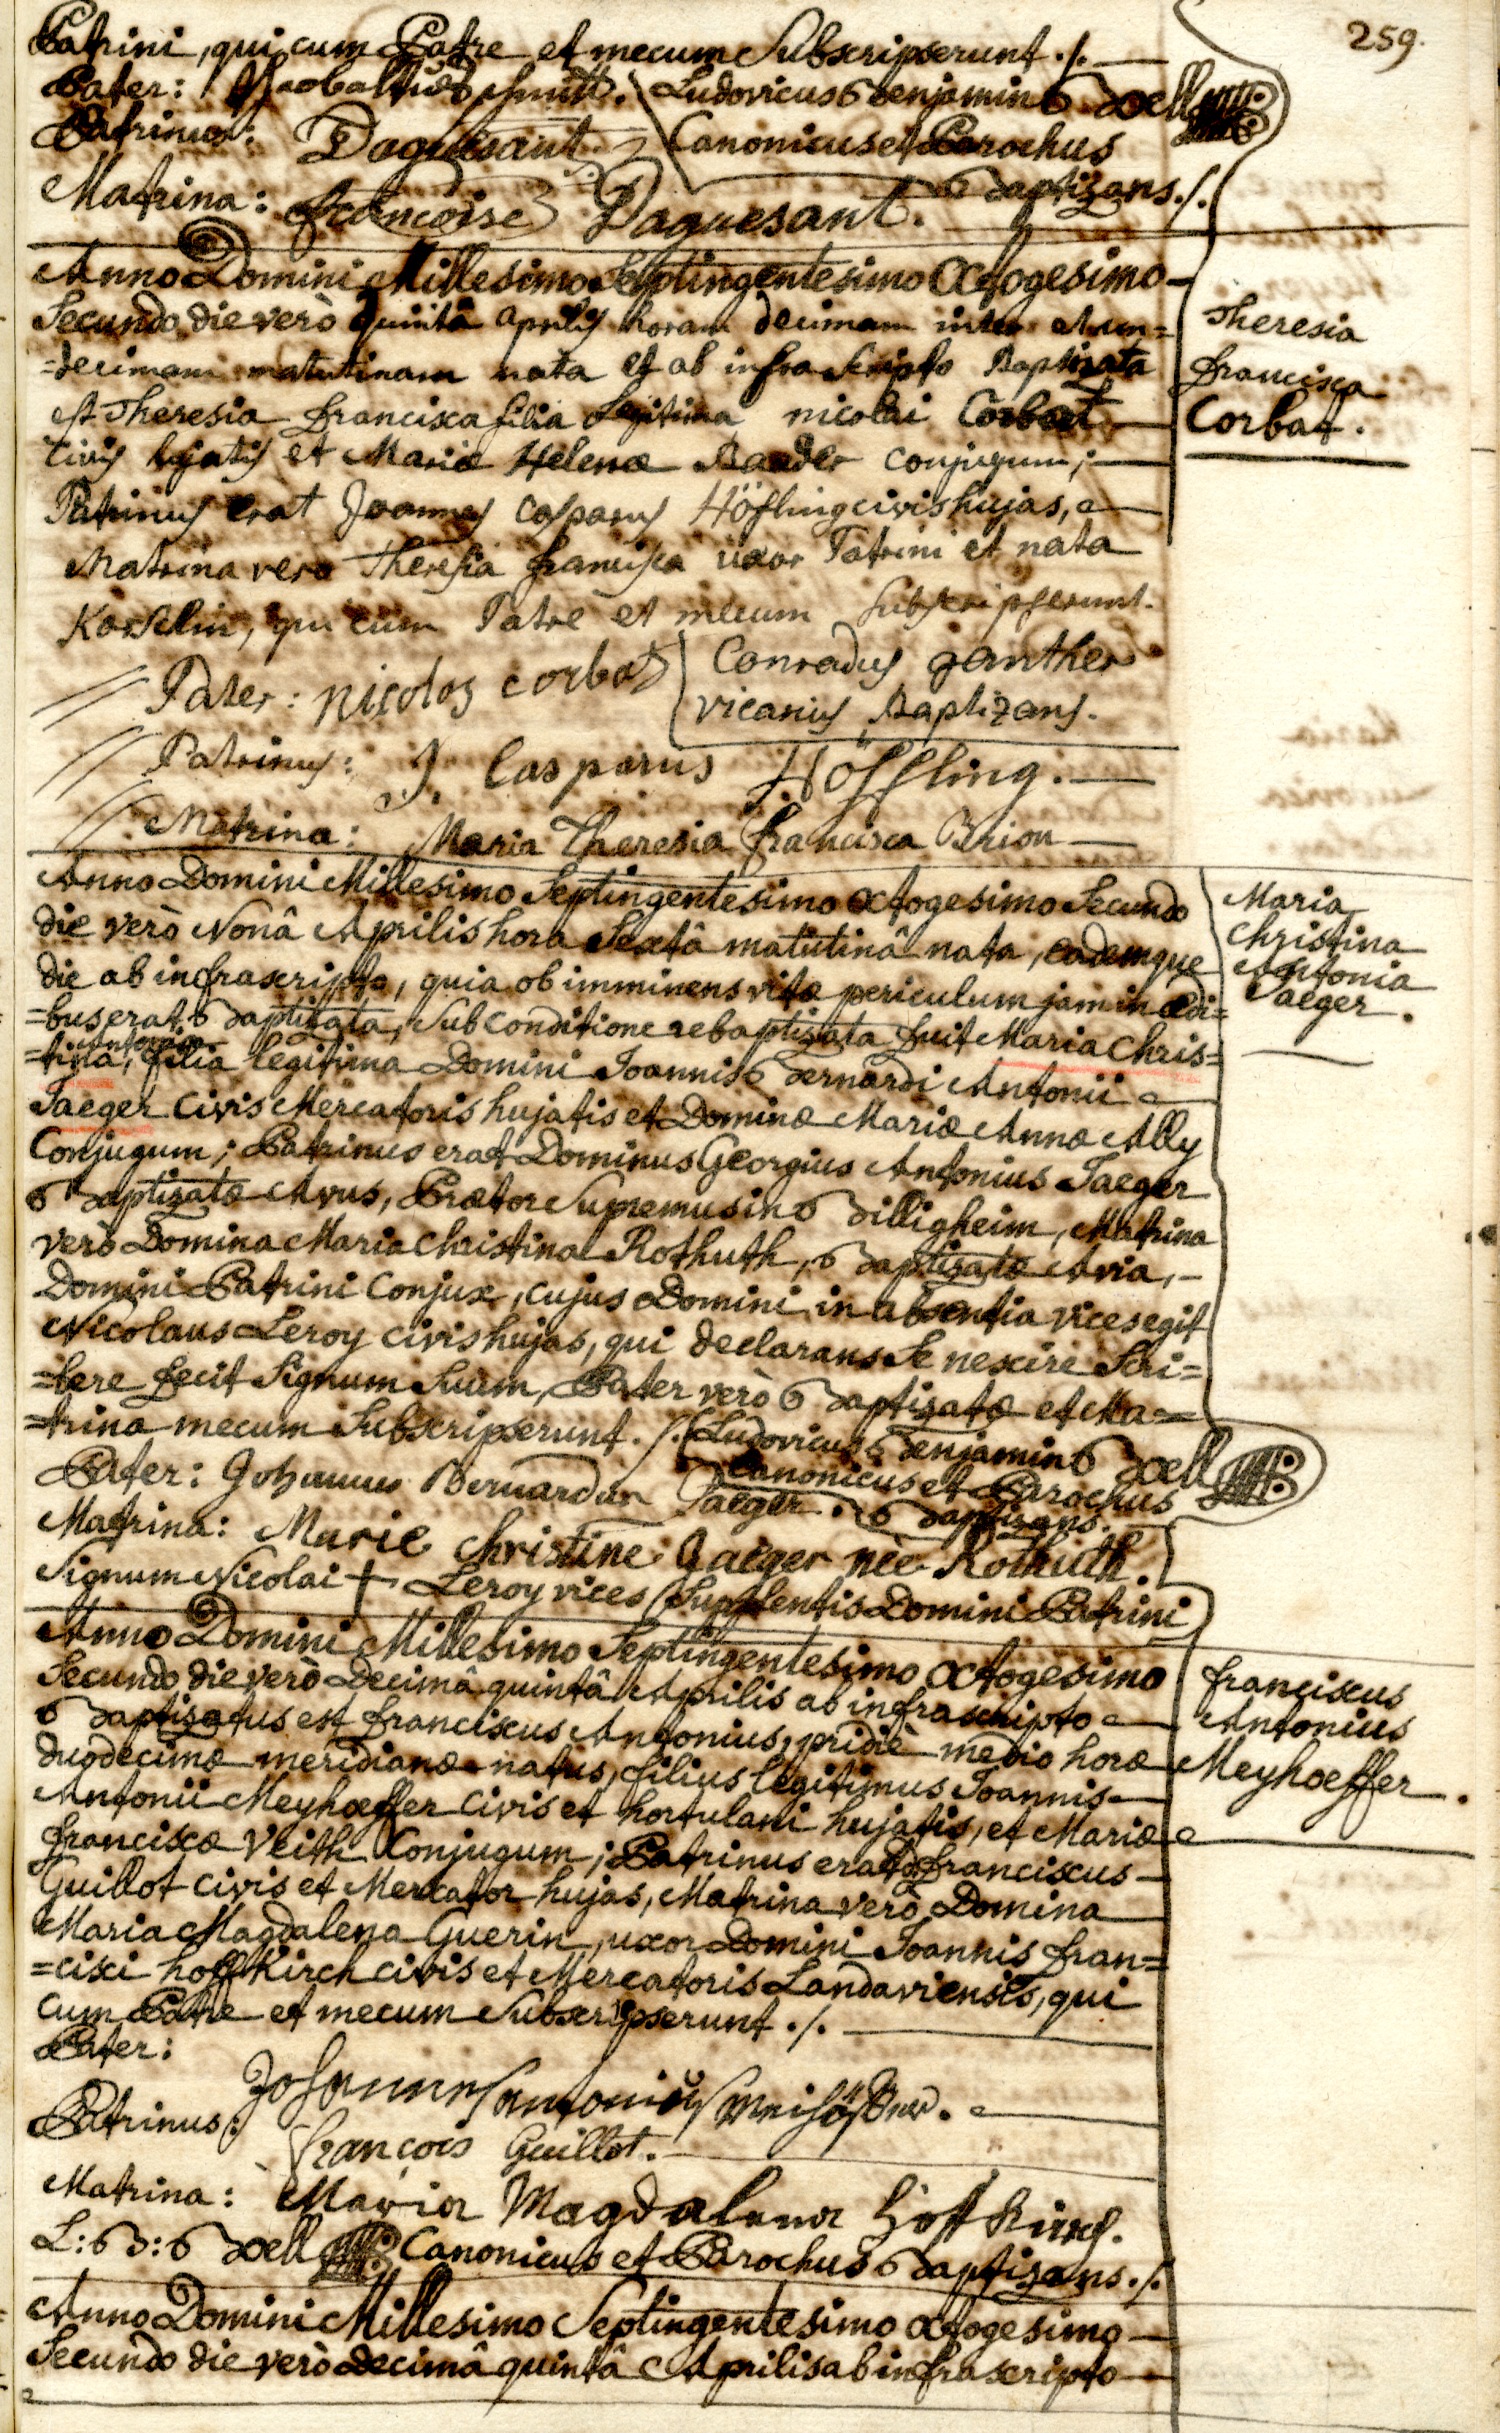 259.
Patrini, qui cum Patre et mecum Subscripserunt ./.
Pater:
Ludovicus Benjamin Boell
Patrinus: Daguesant
Canonicus et Parochus
Baptizans./.
Matrina: françoise Daguesant.
Anno Domini Millesimo Septingentesimo Octogesimo
Secundo die verò quintâ aprilis horam decimam inter et un=
=decimam matutinam nata et ab infra Scripto Baptizata
est Theresia francisca filia Legitima nicolai Corbat
civis hujatis et Mariæ Helenæ Baader conjugum;
Patrinus erat Joannes Casparus Höffling civis hujas,
Matrina vero Theresia francisca uxor Patrini et nata
qui cum Patre et mecum subscripserunt.
Theresia
francisca
Corbat.
Pater: nicolas corbat
Conradus
vicarius Baptizans.
Patrinus: J. Casparus Höffling.
Matrina: Maria Theresia francisca Brion
Anno Domini Millesimo Septingentesimo Octogesimo Secundo
die verò Nonâ Aprilis hora Sextâ matutinâ nata, eademque
die ab infrascripto, quia ob imminens vitæ periculum jam in ædi=
=bus erat Baptizata, Sub conditione rebaptizata fuit Maria Chris=
=tina, Antonia filia legitima Domini Joannis Bernardi Antonii
Jaeger Civis Mercatoris hujatis et Dominæ Mariæ Annæ Ally
Conjugum; Patrinus erat Dominus Georgius Antonius Jaeger
Baptizatæ Avus, Prætor Supremus in Billigheim, Matrina
verò Domina Maria Christina Rothuth, Baptizatæ Avia,
Domini Patrini Conjux, cujus Domini in absentia vices egit
Nicolaus Leroy civis hujas, qui declarans Se nescire Scri=
=bere fecit Signum Suum, Pater verò Baptizatæ et Ma=
=trina mecum Subscripserunt ./.
Maria
Christina
Antonia
Jaeger.
Ludovicus Benjamin Boell
Canonicus et Parochus
Baptizans.
Pater: Johannes Bernardus Jaeger.
Matrina: Marie Christine Jaeger née Rothuth.
Signum Nicolai + Leroy vices Supplentis Domini Patrini
Anno Domini Millesimo Septingentesimo Octogesimo
Secundo die verò Decimâ quintâ Aprilis ab infrascripto
Baptizatus est franciscus Antonius, pridiè medio horæ
duodecimæ meridianæ natus, filius legitimus Joannis
Antonii Meyhoeffer Civis et hortulani hujatis, et Mariæ
franciscæ Veith Conjugum; Patrinus erat D. franciscus
Guillot civis et Mercator hujas, Matrina verò Domina
Maria Magdalena Guerin, uxor Domini Joannis fran=
=cisci hoffkirch civis et Mercatoris Landaviensis, qui
cum Patre et mecum Subscripserunt ./.
franciscus
Antonius
Meyhoeffer.
Pater:
Johannes antonius
Patrinus: françois Guillot.
Matrina: Maria Magdalena Hoffkirch.
L: B: Boell Canonicus et Parochus Baptizans ./.
Anno Domini Millesimo Septingentesimo Octogesimo
Secundo die verò Decimâ quintâ Aprilis ab infrascripto